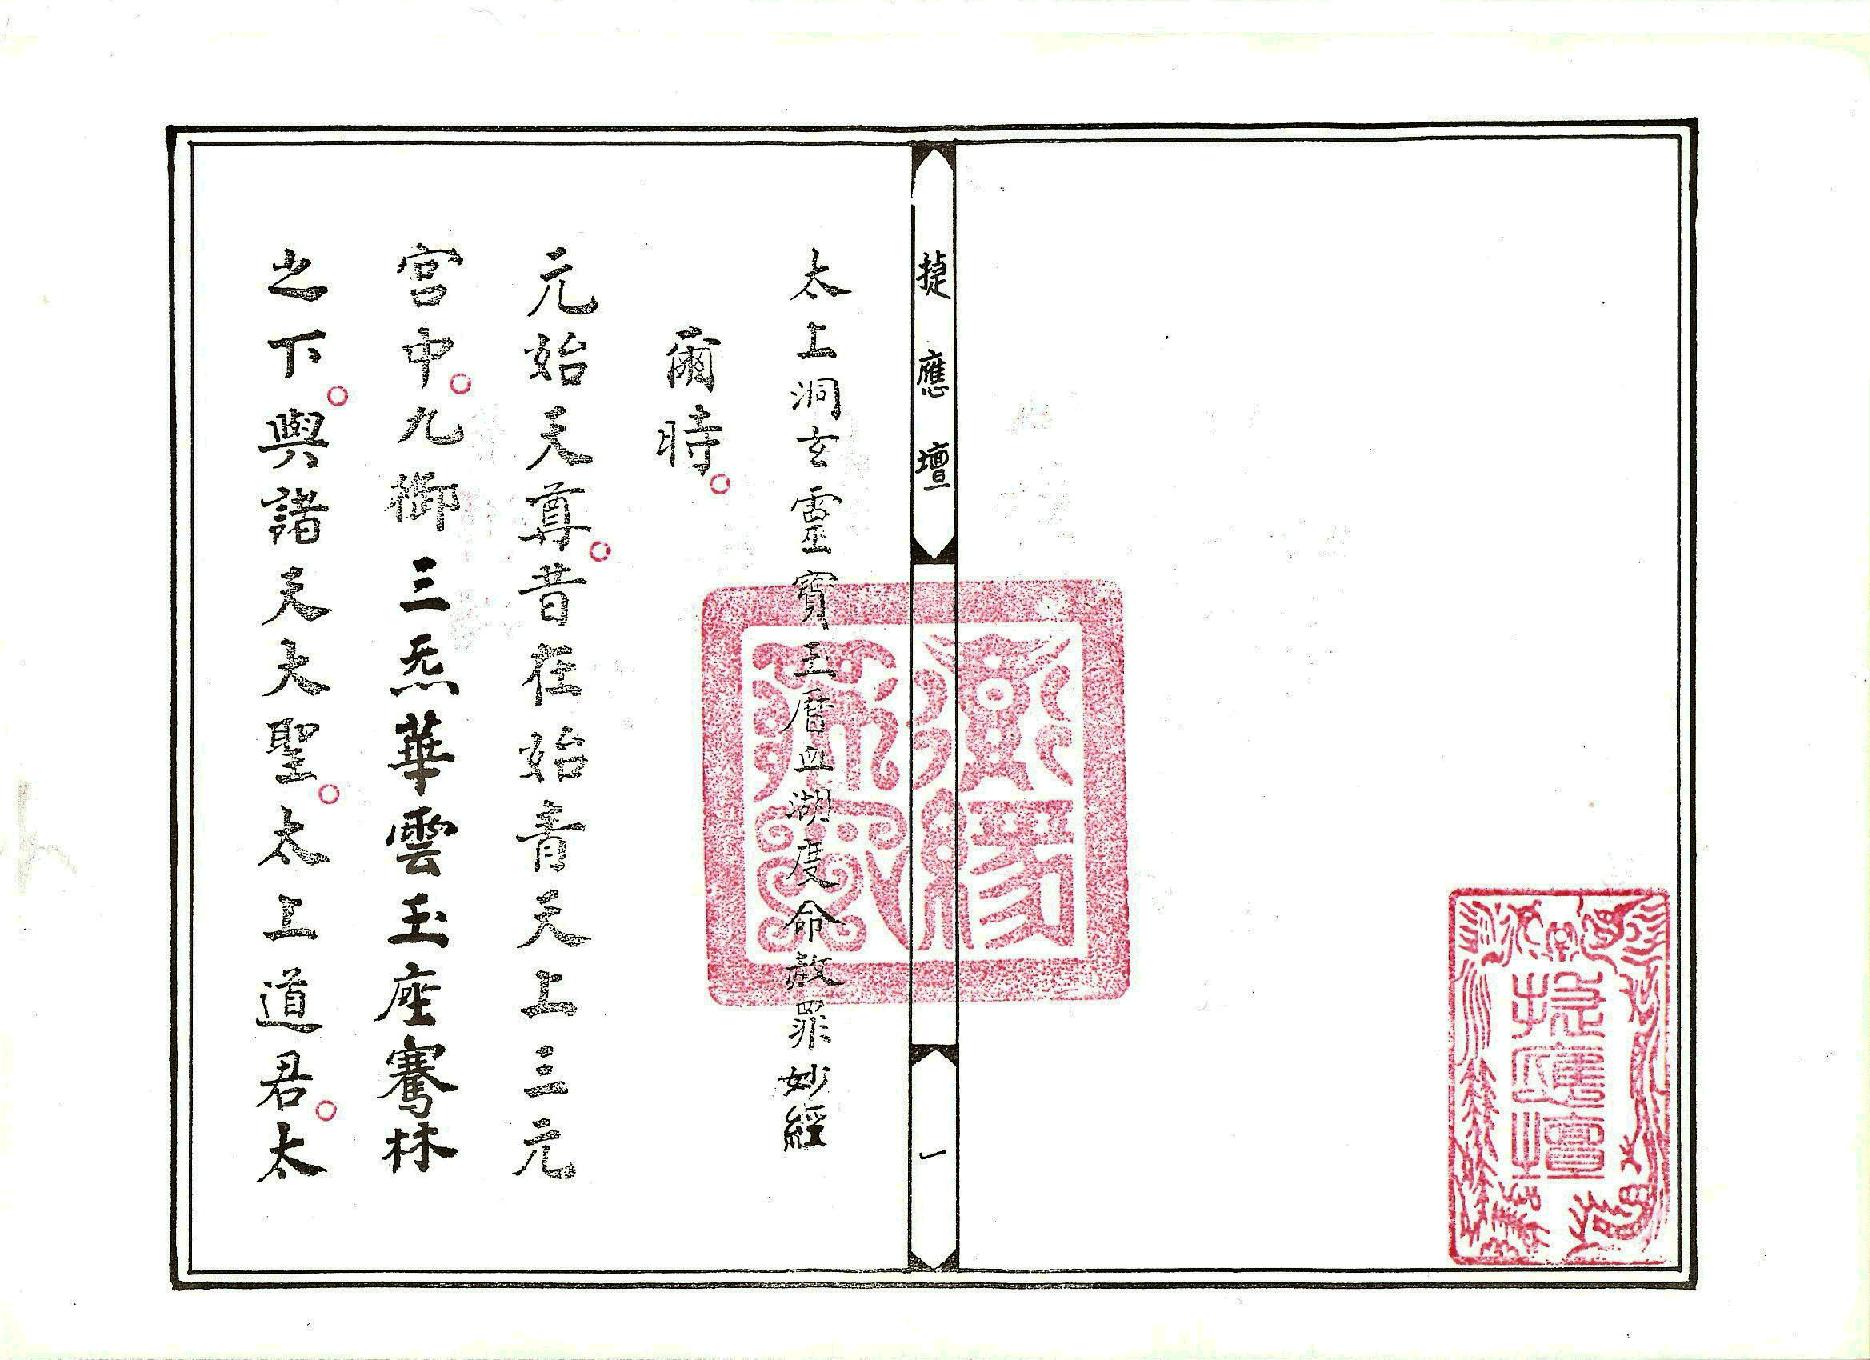 捷應壇
捷應壇
一
太上洞玄靈寶玉暦血湖度命赦罪妙經
爾時。
元始天尊。昔在始青天上三元
宮中。九三炁華雲玉座騫林
之下。與諸天大聖。太上道君。太